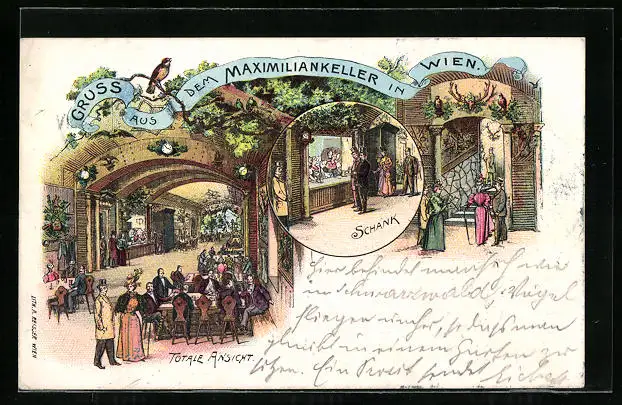 GRUSS AUS DEM MAXIMILIANKELLER IN WIEN.
SCHANK
TOTALE ANSICHT.
LITH. A. WIEN
Hier befindet man sich wie
im Schwarzwald, Vögel
fliegen umher, so daß man
glaubt in einem Garten zu
sitzen. Ein Prosit sendet